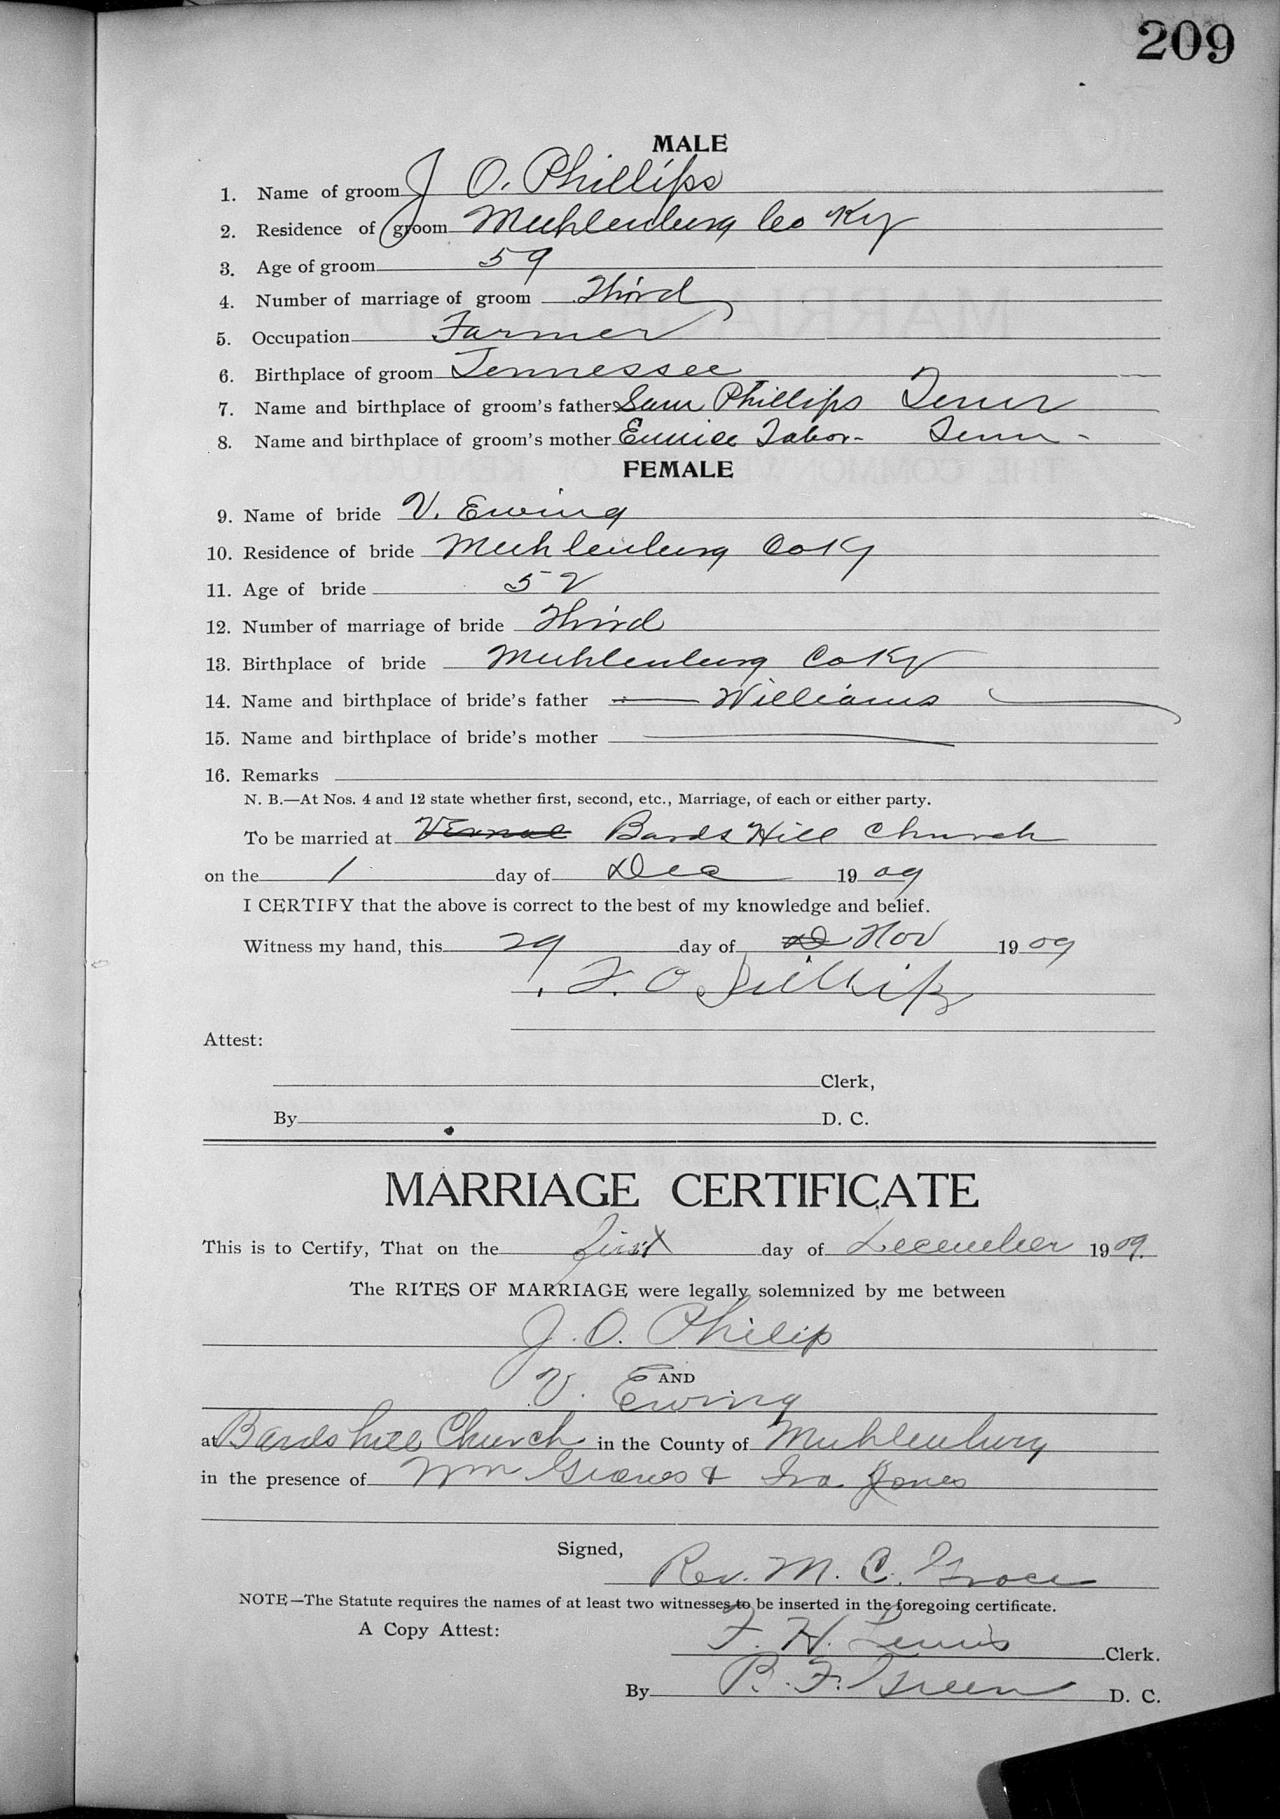 209
MALE
1. Name of groom J O. Phillips
2. Residence of groom Muhlenburg Co Ky
3. Age of groom 59
4. Number of marriage of groom Third
5. Occupation Farmer
6. Birthplace of groom Tennessee
7. Name and birthplace of groom's father Sam Phillips Tenn
8. Name and birthplace of groom's mother Eunice Tabor- Tenn-
FEMALE
9. Name of bride V. Ewing
10. Residence of bride Muhlenburg Co Ky
11. Age of bride 52
12. Number of marriage of bride Third
13. Birthplace of bride Muhlenburg Co Ky
14. Name and birthplace of bride's father — Williams —
15. Name and birthplace of bride's mother —
16. Remarks
N. B.—At Nos. 4 and 12 state whether first, second, etc., Marriage, of each or either party.
To be married at Bards Hill Church
on the 1 day of Dec 1909
I CERTIFY that the above is correct to the best of my knowledge and belief.
Witness my hand, this 29 day of Nov 1909
O
Attest:
Clerk,
By D. C.
MARRIAGE CERTIFICATE
This is to Certify, That on the first day of December 1909.
The RITES OF MARRIAGE were legally solemnized by me between
J. O. Philip
AND
V. Ewing
at Bards hill Church in the County of Muhlenburg
in the presence of Wm Graves & Ira Jones
Signed,
Rev. M. C. Groce
NOTE—The Statute requires the names of at least two witnesses to be inserted in the foregoing certificate.
A Copy Attest:
F. H. Lewis Clerk.
By B. F. Green D. C.